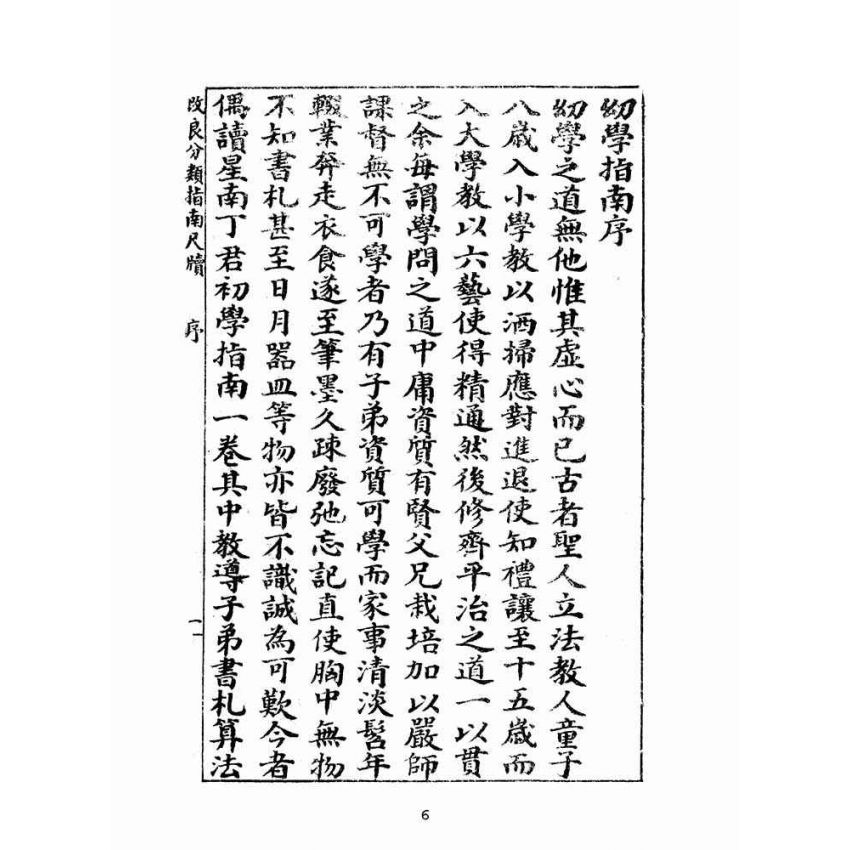 幼學指南序
幼學之道無他惟其虛心而已古者聖人立法教人童子
八歲入小學教以洒掃應對進退使知禮讓至十五歲而
入大學教以六藝使得精通然後修齊平治之道一以貫
之余每謂學問之道中庸資質有賢父兄栽培加以嚴師
課督無不可學者乃有子弟資質可學而家事清淡髫年
輟業奔走衣食遂至筆墨久疎廢弛忘記直使胸中無物
不知書札甚至日月器皿等物亦皆不識誠為可歎今者
偶讀星南丁君初學指南一卷其中教導子弟書札算法
改良分類指南尺牘 序 一
6